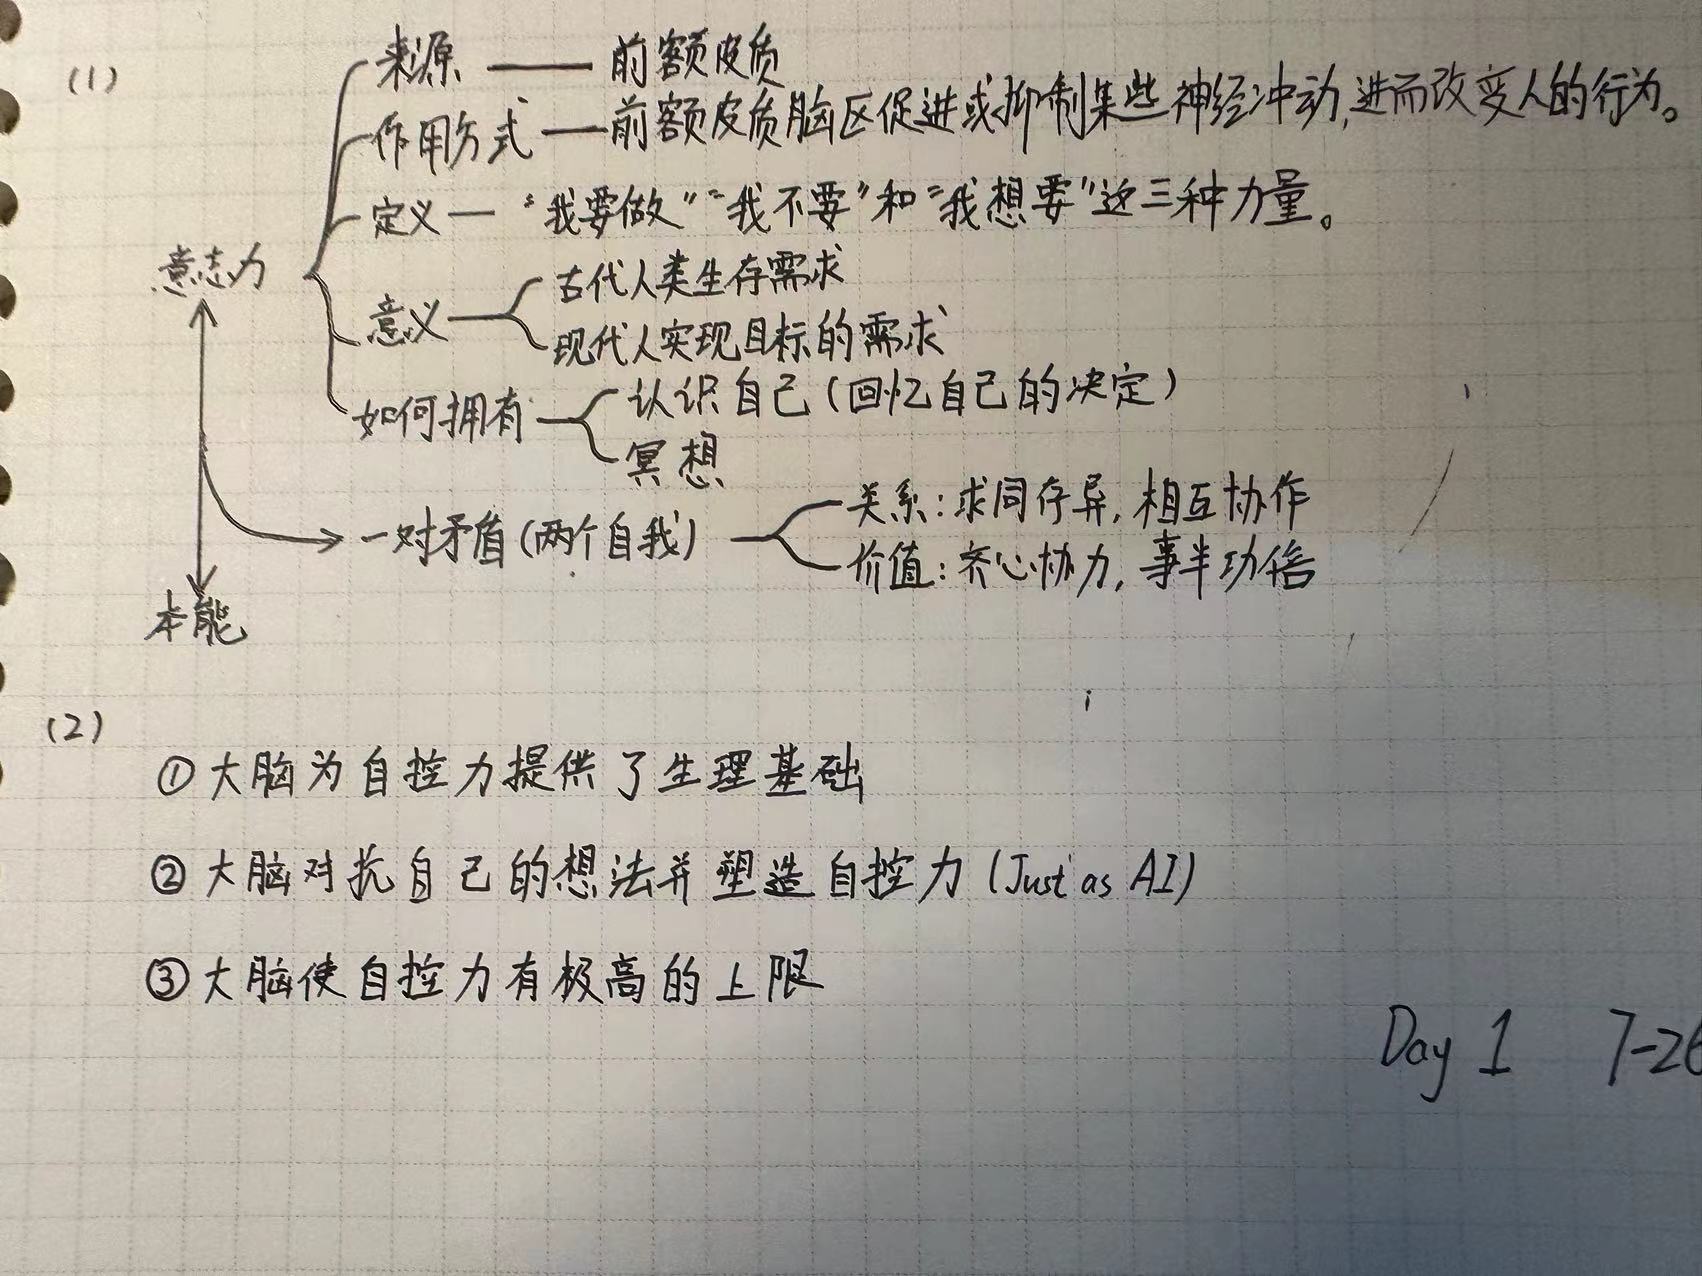 (1)
来源 —— 前额皮质
作用方式 —— 前额皮质脑区促进或抑制某些神经冲动,进而改变人的行为。
定义 — “我要做”“我不要”和“我想要”这三种力量。
意志力
意义
古代人类生存需求
现代人实现目标的需求
如何拥有
认识自己(回忆自己的决定)
冥想
一对矛盾(两个自我)
关系:求同存异,相互协作
价值:齐心协力,事半功倍
本能
(2)
①大脑为自控力提供了生理基础
②大脑对抗自己的想法并塑造自控力(Just as AI)
③大脑使自控力有极高的上限
Day 1 7-26